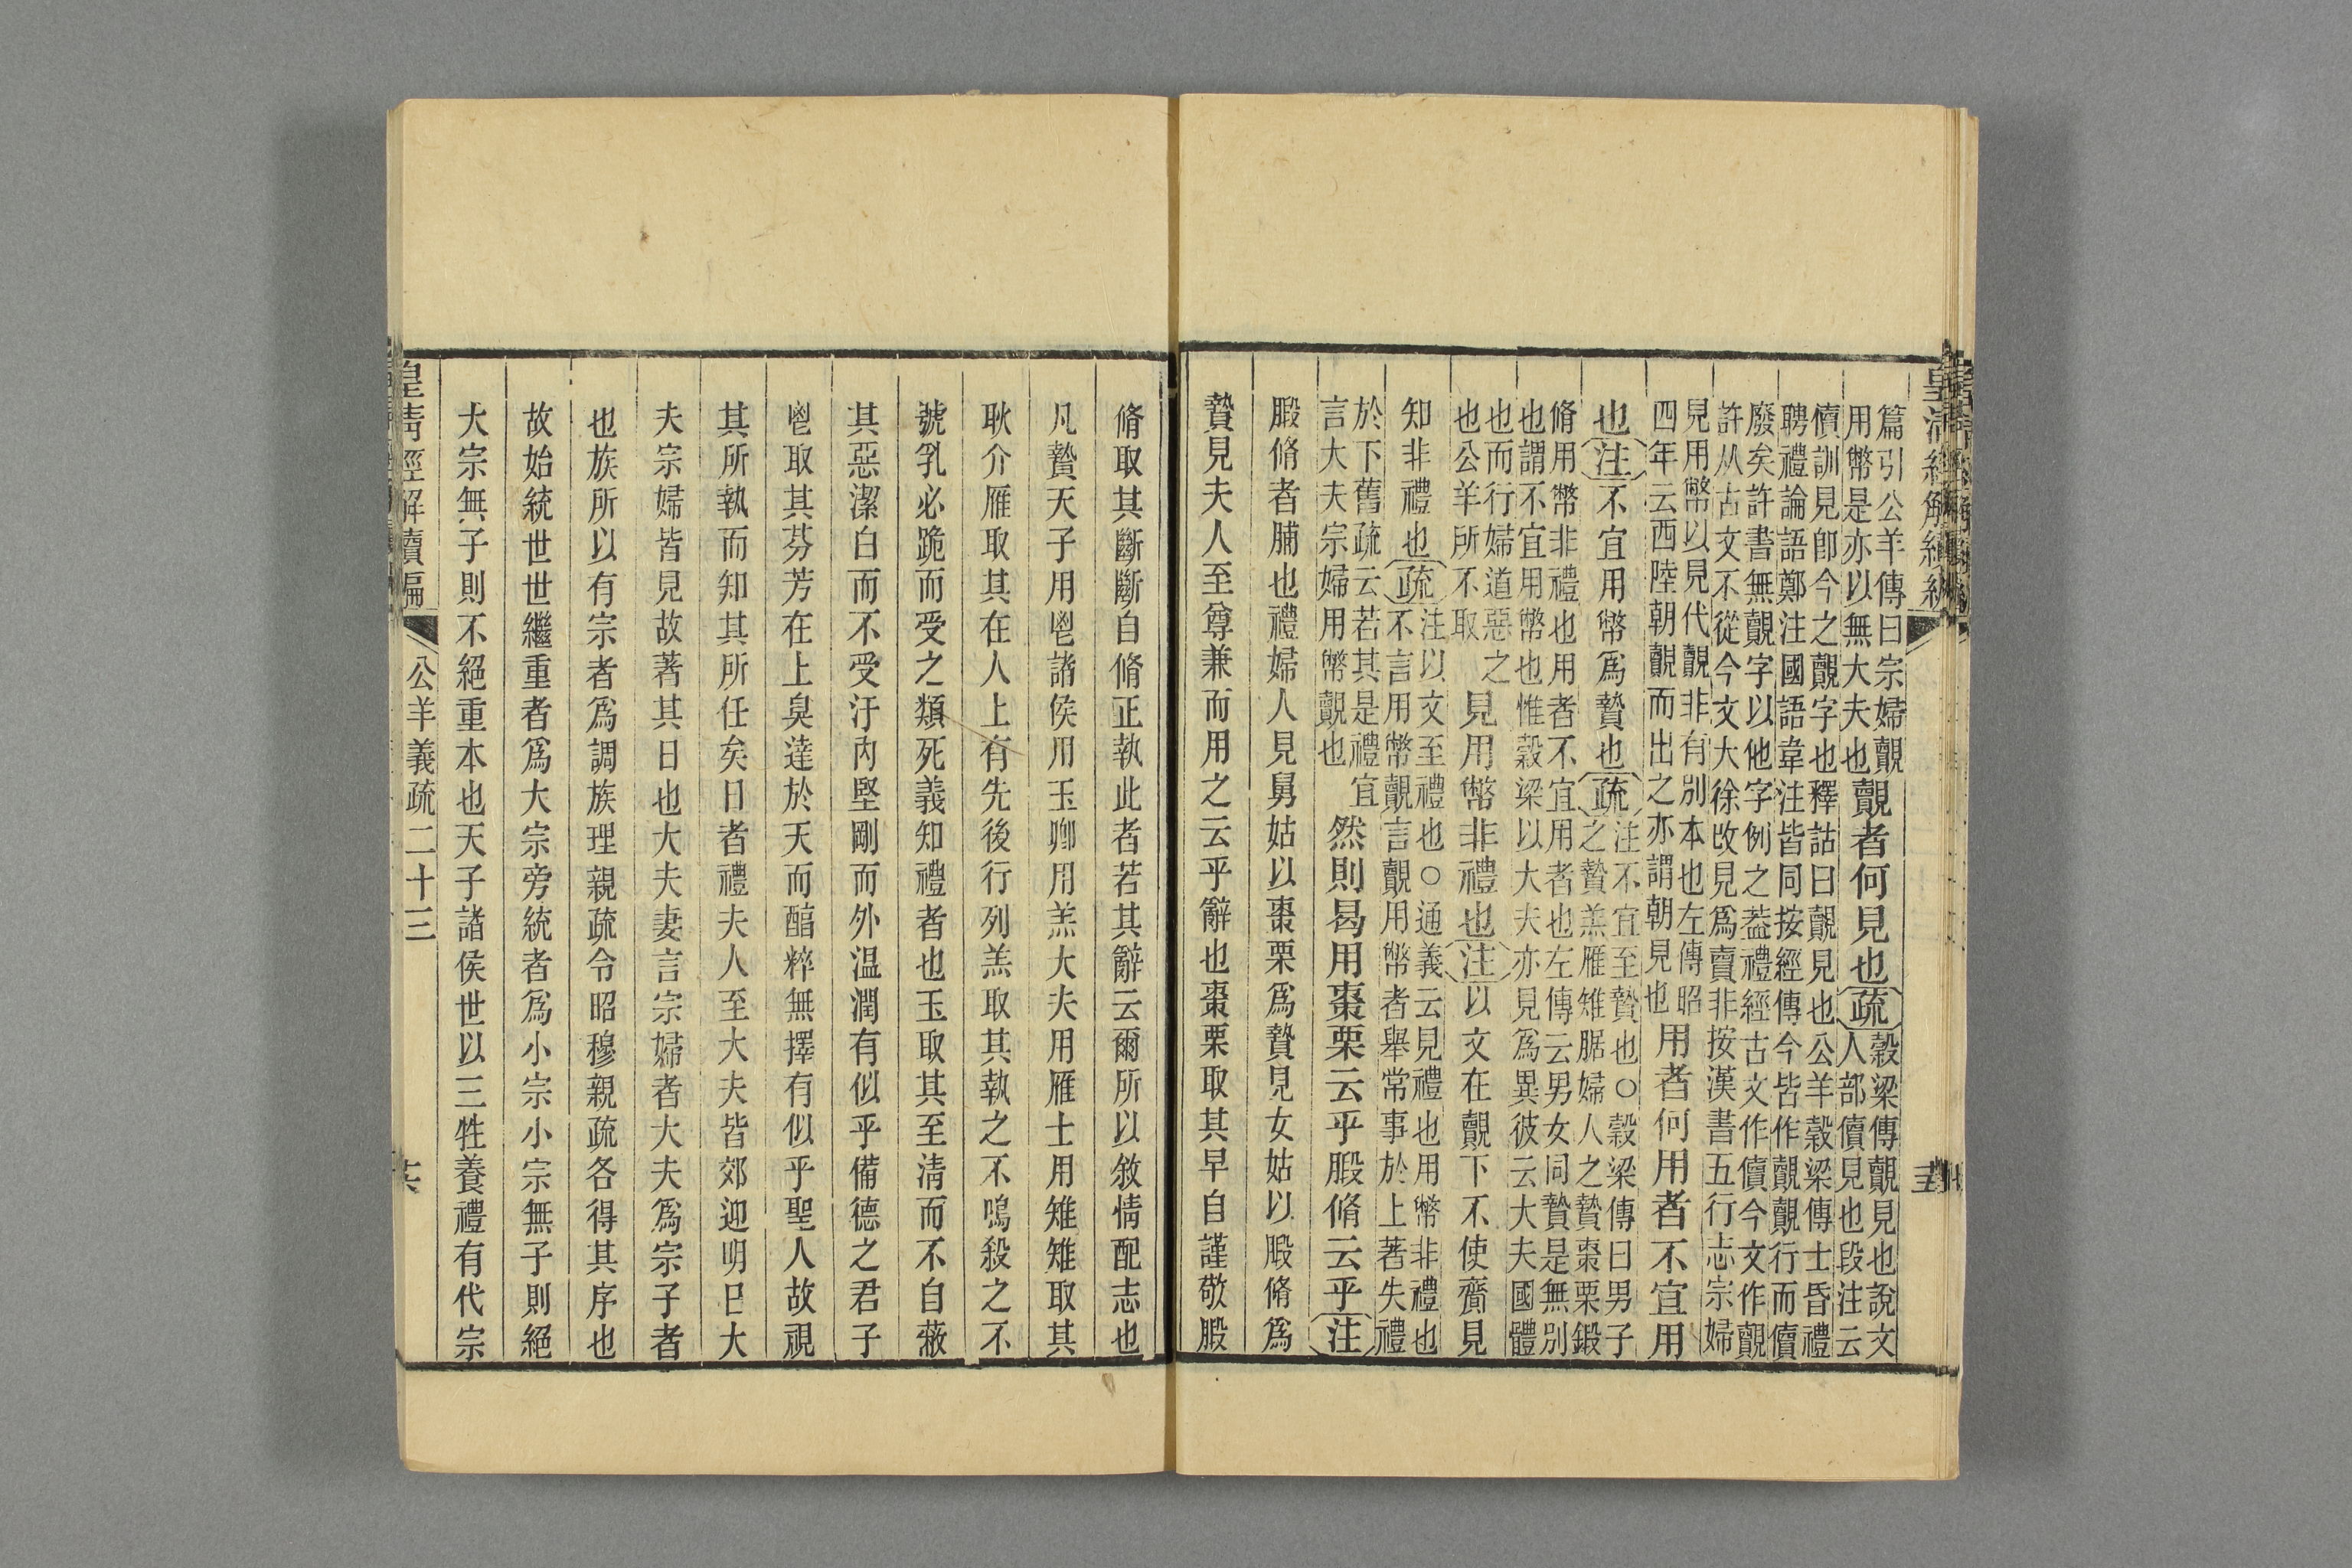 皇清經解續編
篇引公羊傳曰宗婦覿
用幣是亦以無大夫也
覿者何見也疏
穀梁傳覿見也說文
人部儥見也段注云
儥訓見卽今之覿字也釋詁曰覿見也公羊穀梁傳士昏禮
聘禮論語鄭注國語韋注皆同按經傳今皆作覿覿行而儥
廢矣許書無覿字以他字例之葢禮經古文作儥今文作覿
許从古文不從今文大徐改見爲賣非按漢書五行志宗婦
見用幣以見代覿非有別本也左傳昭
四年云西陸朝覿而出之亦謂朝見也
用者何用者不宜用
也注不宜用幣爲贄也疏
注不宜至贄也○穀梁傳曰男子
之贄羔雁雉腒婦人之贄棗栗鍛
脩用幣非禮也用者不宜用者也左傳云男女同贄是無別
也謂不宜用幣也惟穀梁以大夫亦見爲異彼云大夫國體
也而行婦道惡之
也公羊所不取
見用幣非禮也注以文在覿下不使齎見
知非禮也疏
注以文至禮也○通義云見禮也用幣非禮也
不言用幣覿言覿用幣者舉常事於上著失禮
於下舊疏云若其是禮宜
言大夫宗婦用幣覿也
然則曷用棗栗云乎腶脩云乎注
腶脩者脯也禮婦人見舅姑以棗栗爲贄見女姑以腶脩爲
贄見夫人至尊兼而用之云乎辭也棗栗取其早自謹敬腶
脩取其斷斷自脩正執此者若其辭云爾所以敘情配志也
凡贄天子用鬯諸侯用玉卿用羔大夫用雁士用雉雉取其
耿介雁取其在人上有先後行列羔取其執之不鳴殺之不
號乳必跪而受之類死義知禮者也玉取其至清而不自蔽
其惡潔白而不受汙內堅剛而外温潤有似乎備德之君子
鬯取其芬芳在上臭達於天而醕粹無擇有似乎聖人故視
其所執而知其所任矣日者禮夫人至大夫皆郊迎明日大
夫宗婦皆見故著其日也大夫妻言宗婦者大夫爲宗子者
也族所以有宗者爲調族理親疏令昭穆親疏各得其序也
故始統世世繼重者爲大宗旁統者爲小宗小宗無子則絕
大宗無子則不絕重本也天子諸侯世以三牲養禮有代宗
皇清經解續編 公羊義疏二十三 六